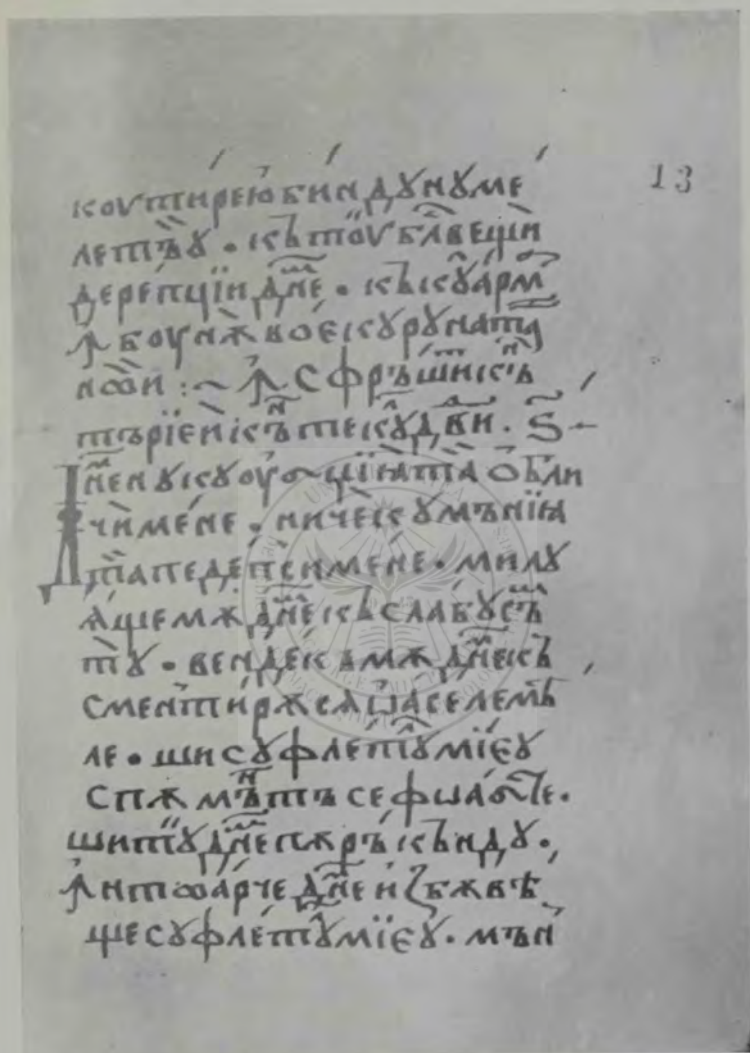 коуптирею бин дꙋнꙋме
летѣꙋ · къ тоу бл҃вещи
дерепций дм҃не · къ кꙋ арм
ꙟ боунѫ вое кꙋрꙋната
ноѡи :~ ꙟ сфръшикъ
търїе н҆ къ текꙋ дв҃и · ѕ҃
Дм҃не нꙋ кꙋ оу~цїꙗ та ѻбли
чи мене · ниче кꙋ мънїꙗ
та педепси мене · милꙋ
ꙗще мѫ дм҃не къ слабꙋ съ
тꙋ · вендекъ мѫ дм҃не къ
сментирѫсѧ ѡаселемѣ
ле · ши сꙋфлетꙋ мїеꙋ
спѫмѫтъ се фѡа~те ·
ши тꙋ дм҃не пѫръ къндꙋ ·
ꙟнтоарче дм҃не избѫвѣ
ще сꙋфлетꙋ мїеꙋ · мън
13